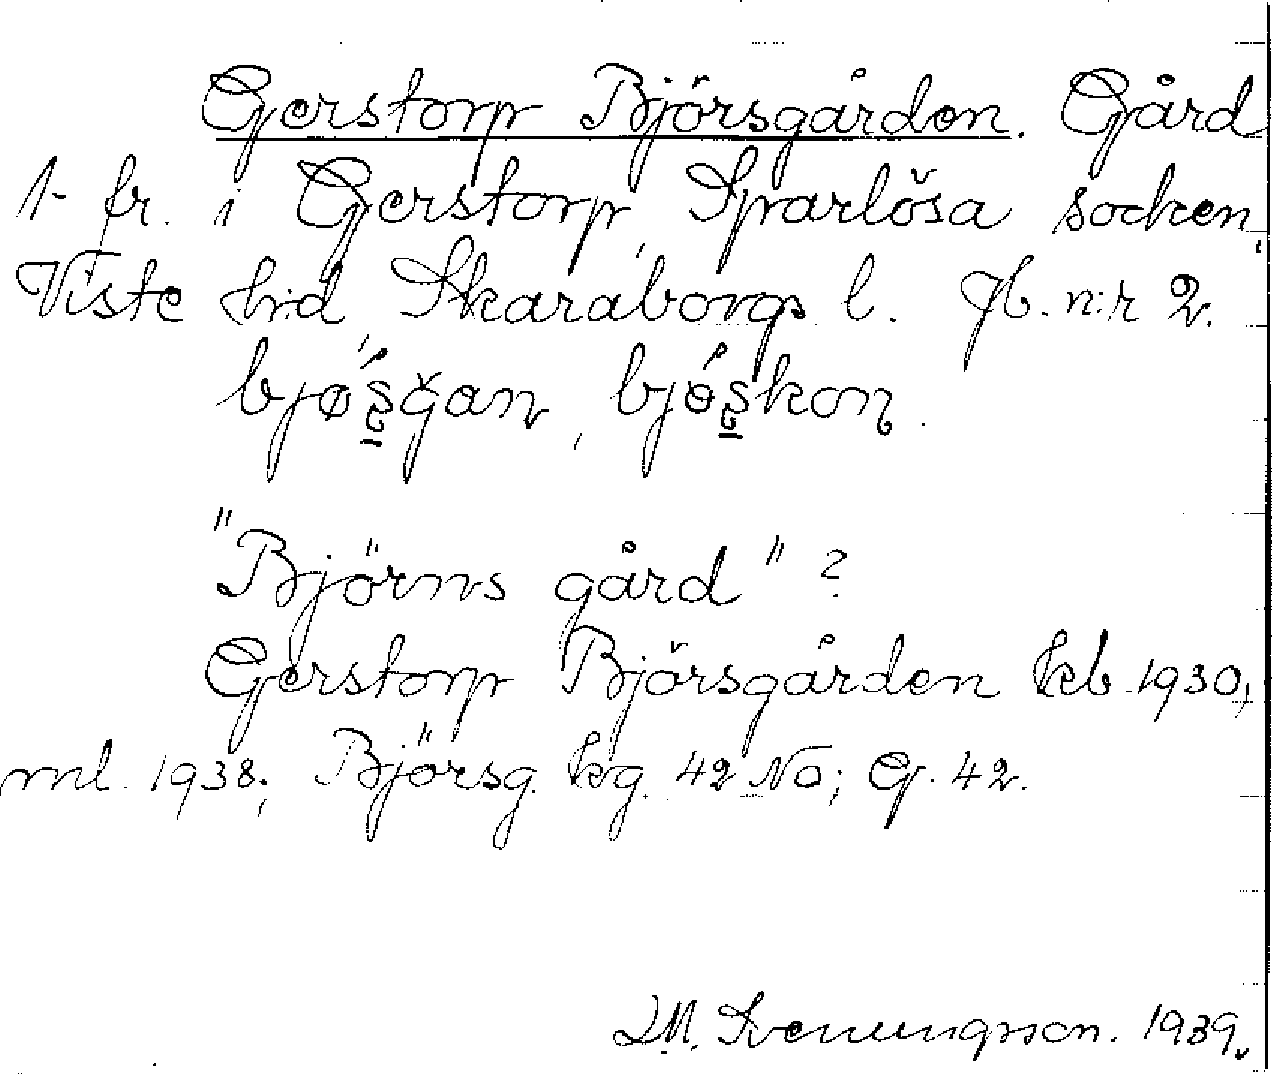 Gerstorp Björsgården. Gård
1 fr. i Gerstorp, Sparlösa socken,
Viste hd, Skaraborgs l. Jb. n:r 2.
"Björns gård"?
Gerstorp Björsgården kb 1930,
ml. 1938; Björsg. kg. 42 No; G. 42.
Svenungsson. 1939.